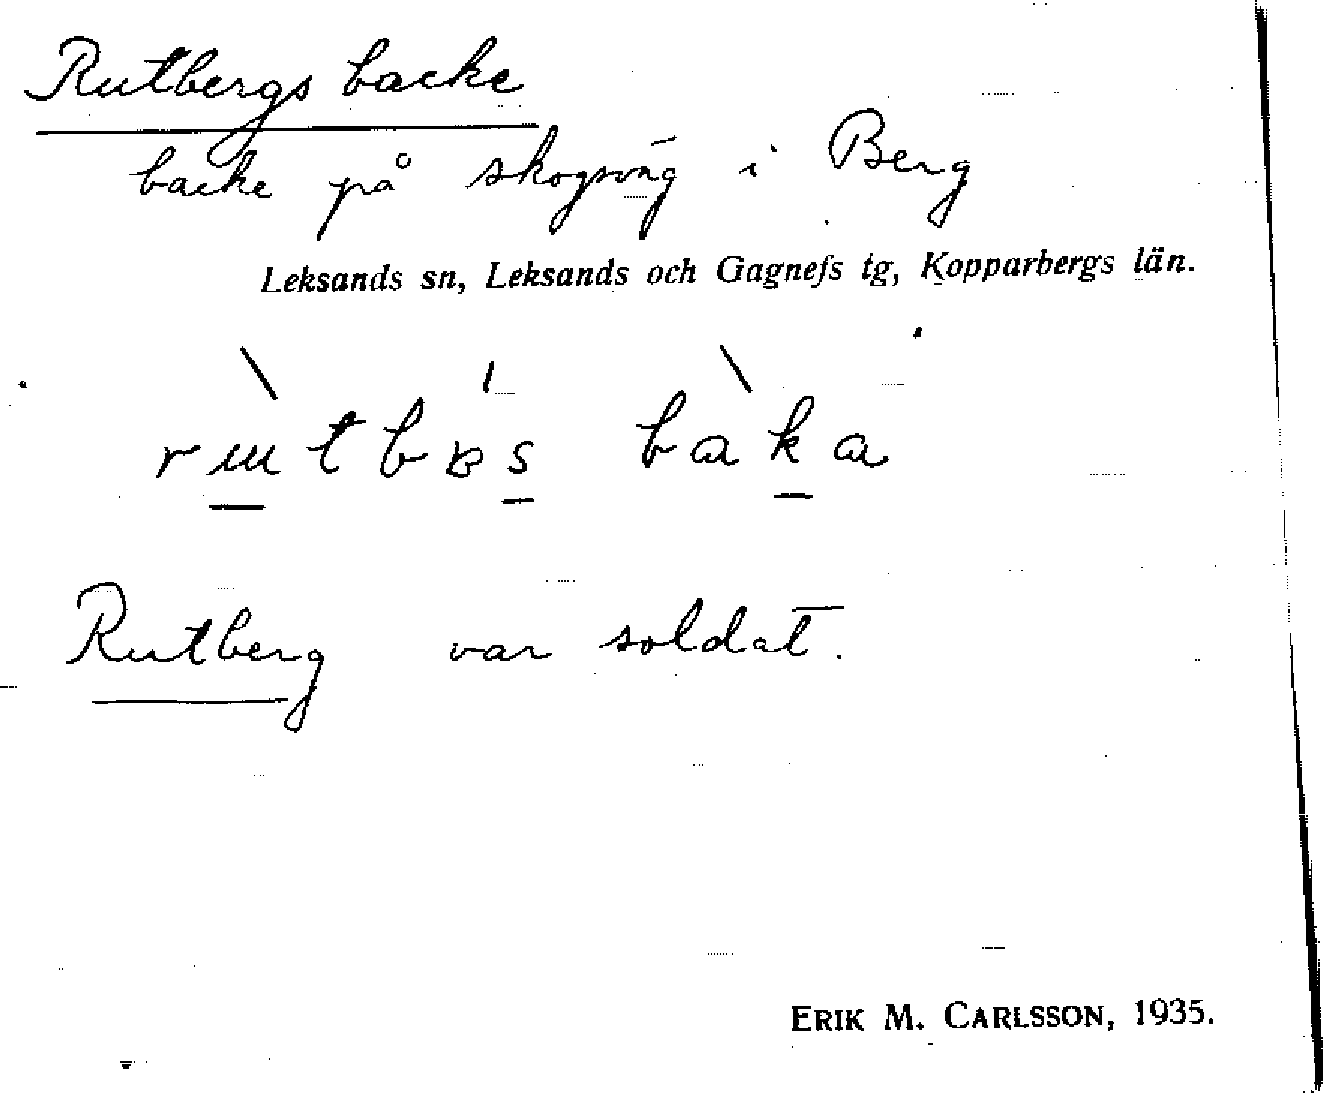 Rutbergs backe
backe på skogsväg i Berg
Leksands sn, Leksands och Gagnefs tg, Kopparbergs län.
baka
Rutberg var soldat.
ERIK M. CARLSSON, 1935.